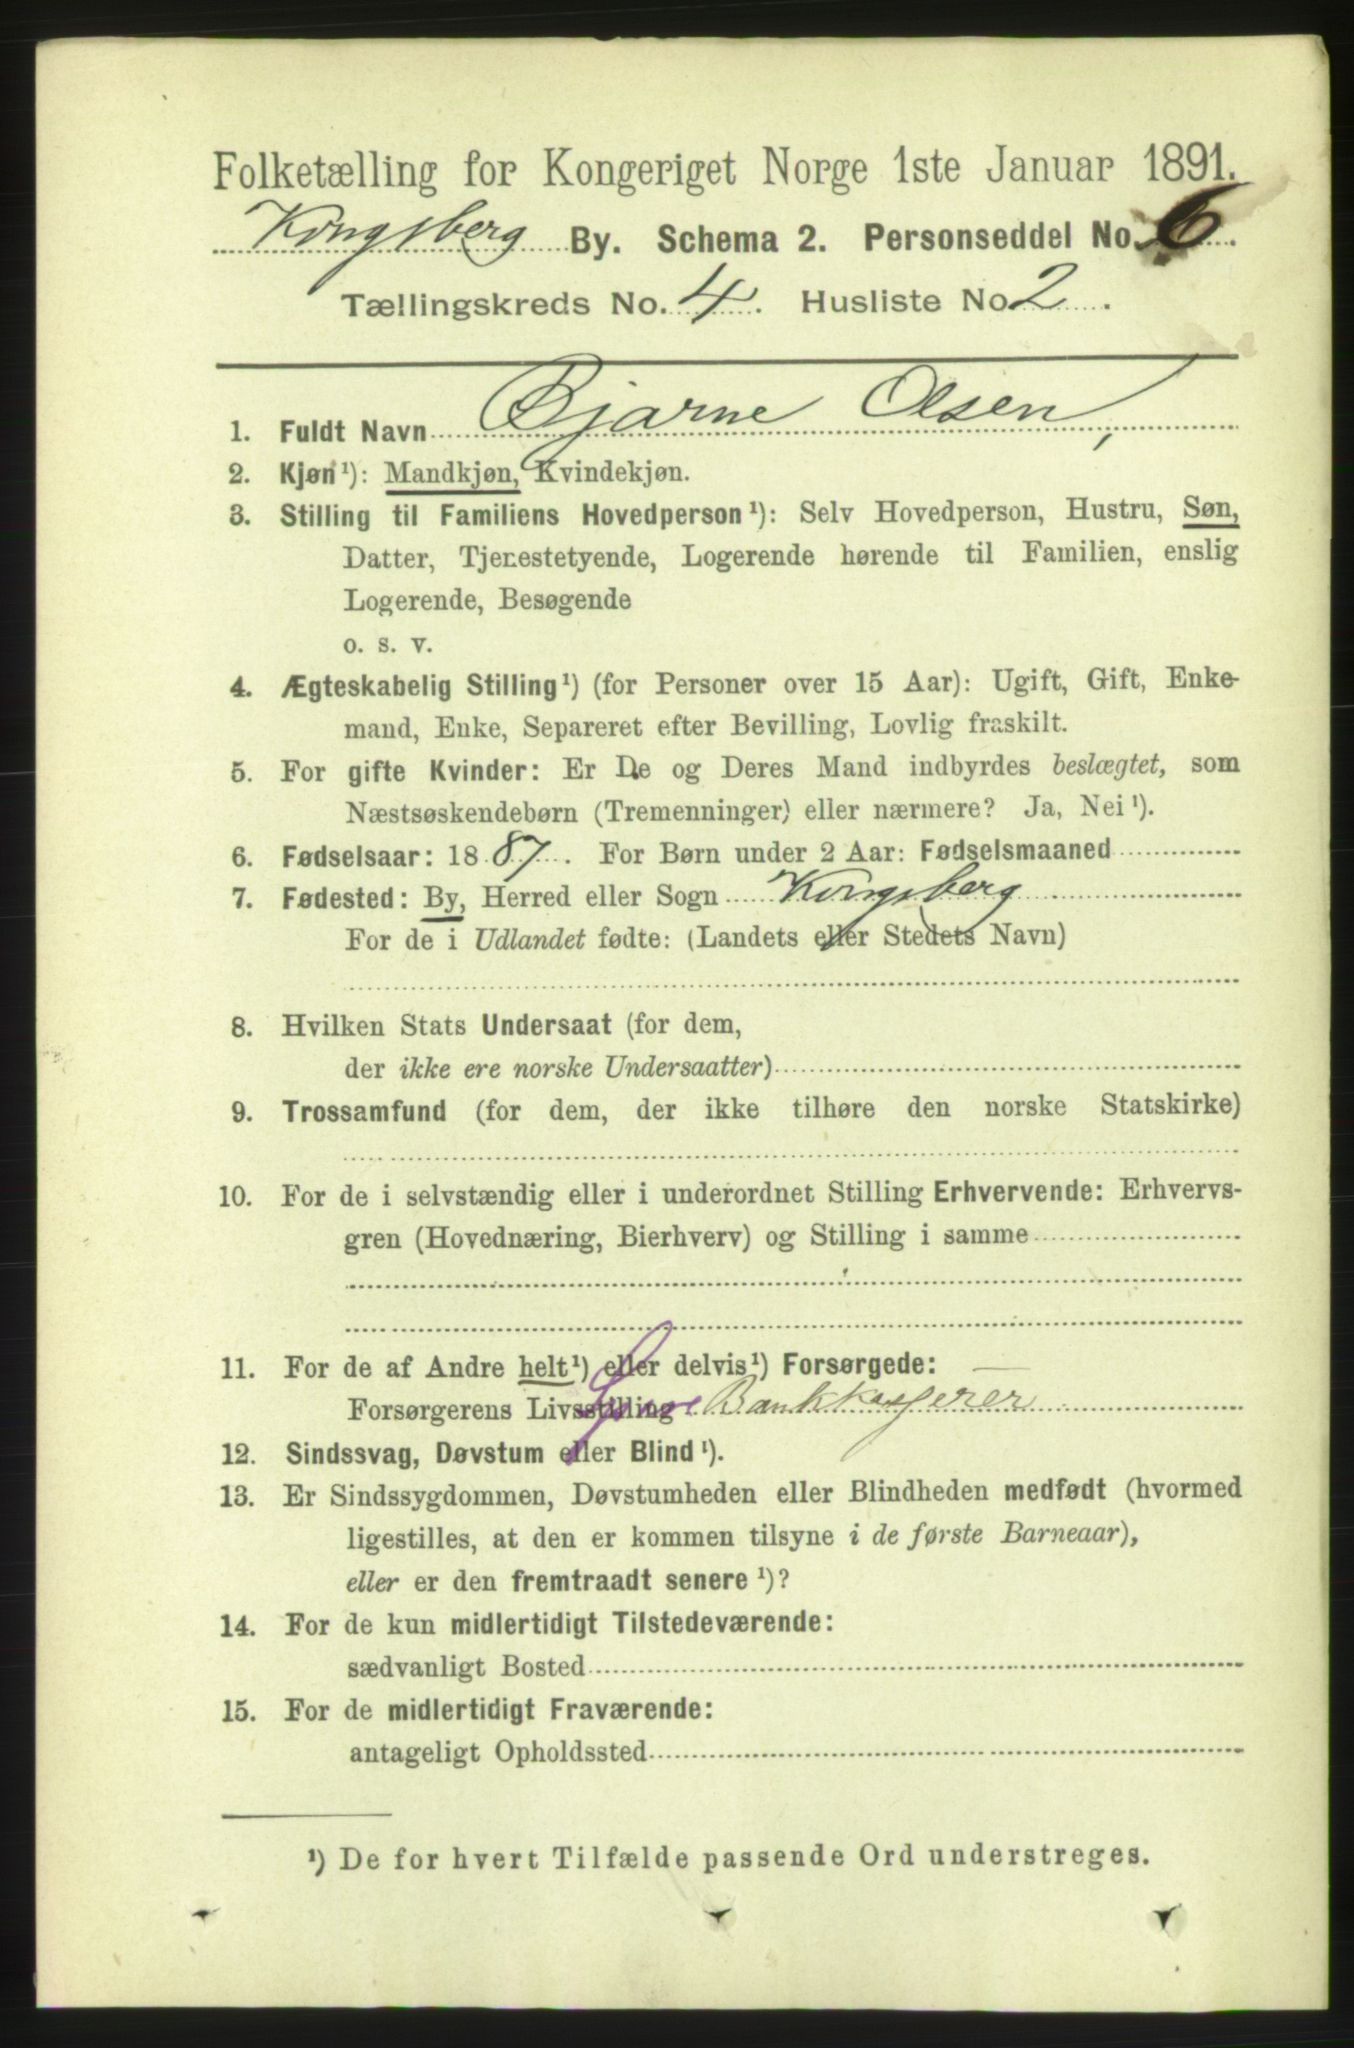 Folketælling for Kongeriget Norge 1ste Januar 1891.
Kongsberg By. Schema 2. Personseddel No. 6.
Tællingskreds No. 4. Husliste No 2.
1. Fuldt Navn Bjarne Olsen,
2. Kjøn¹): Mandkjøn, Kvindekjøn.
3. Stilling til Familiens Hovedperson¹): Selv Hovedperson, Hustru, Søn,
Datter, Tjenestetyende, Logerende hørende til Familien, enslig
Logerende, Besøgende
o. s. v.
4. Ægteskabelig Stilling¹) (for Personer over 15 Aar): Ugift, Gift, Enke-
mand, Enke, Separeret efter Bevilling, Lovlig fraskilt.
5. For gifte Kvinder: Er De og Deres Mand indbyrdes beslægtet, som
Næstsøskendebørn (Tremenninger) eller nærmere? Ja, Nei¹).
6. Fødselsaar: 1887. For Børn under 2 Aar: Fødselsmaaned
7. Fødested: By, Herred eller Sogn Kongsberg
For de i Udlandet fødte: (Landets eller Stedets Navn)
8. Hvilken Stats Undersaat (for dem,
der ikke ere norske Undersaatter)
9. Trossamfund (for dem, der ikke tilhøre den norske Statskirke)
10. For de i selvstændig eller i underordnet Stilling Erhvervende: Erhvervs-
gren (Hovednæring, Bierhverv) og Stilling i samme
11. For de af Andre helt¹) eller delvis¹) Forsørgede:
Forsørgerens Livsstilling Bankkasserer
12. Sindssvag, Døvstum eller Blind¹).
13. Er Sindssygdommen, Døvstumheden eller Blindheden medfødt (hvormed
ligestilles, at den er kommen tilsyne i de første Barneaar),
eller er den fremtraadt senere¹)?
14. For de kun midlertidigt Tilstedeværende:
sædvanligt Bosted
15. For de midlertidigt Fraværende:
antageligt Opholdssted
¹) De for hvert Tilfælde passende Ord understreges.